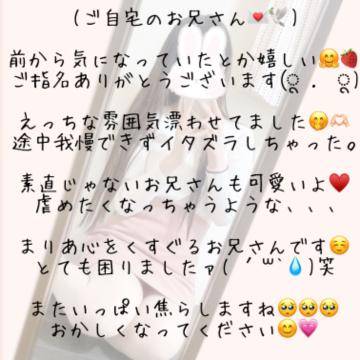 (ご自宅のお兄さん💌🕊️)
前から気になっていたとか嬉しい🤗🍓
ご指名ありがとうございます(ු ．  ු)
えっちな雰囲気漂わせてました🤭🫶🏻
途中我慢できずイタズラしちゃった。
素直じゃないお兄さんも可愛いよ♥️
虐めたくなっちゃうような、、、
まりあ心をくすぐるお兄さんです☺️
とても困りましたァ( ´ ꒳ ` 💧)笑
またいっぱい焦らしますね🥺🥺🥺
おかしくなってください😊💗